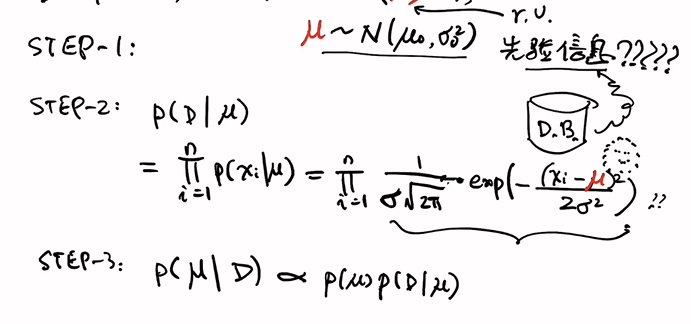 r.v.
STEP-1: μ ~ N(μ₀, σ₀²) 先验信息?????
D.B.
STEP-2: p(D|μ)
= ∏ᵢ₌₁ⁿ p(xᵢ|μ) = ∏ᵢ₌₁ⁿ 1/(σ√2π) exp(-(xᵢ-μ)²/2σ²) ??
STEP-3: p(μ|D) ∝ p(μ)p(D|μ)